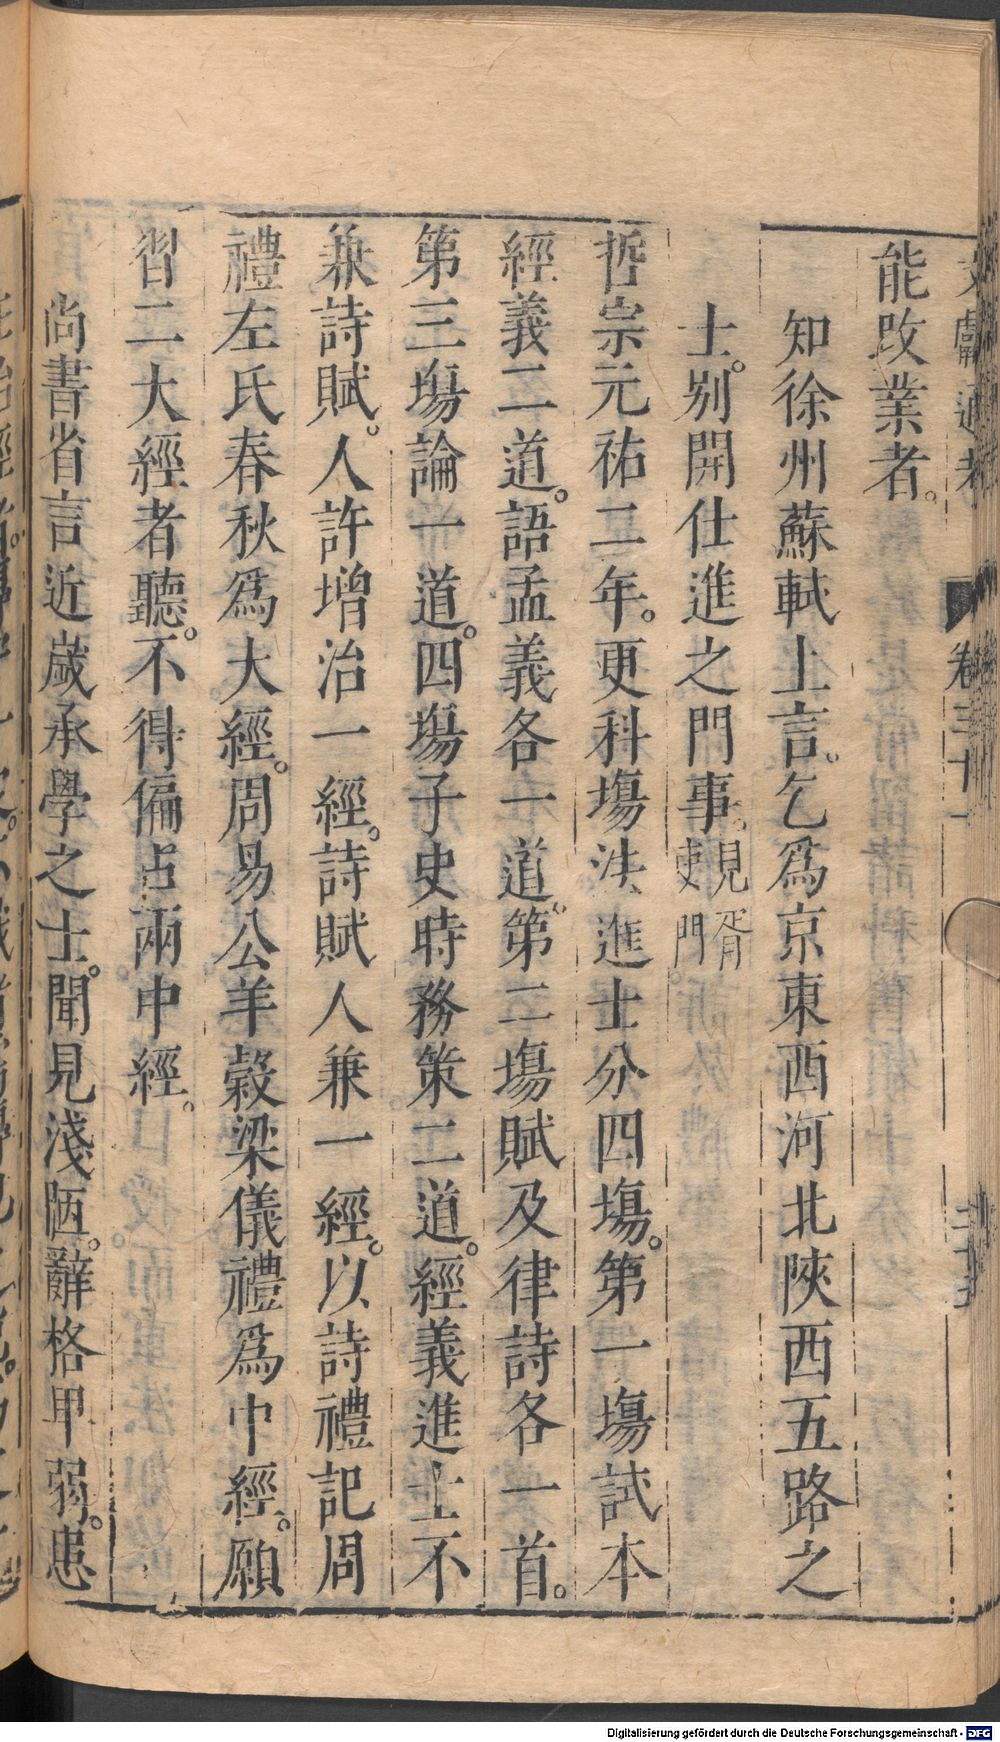 能改業者。
知徐州蘇軾上言。乞爲京東西河北陝西五路之
士。别開仕進之門事。見胥吏門。
哲宗元祐二年。更科塲法進士分四塲。第一塲試本
經義二道。語孟義各一道。第二塲賦及律詩各一首。
第三塲論一道。四塲子史時務策二道。經義進士不
兼詩賦。人許增治一經。詩賦人兼一經。以詩禮記周
禮左氏春秋爲大經。周易公羊榖梁儀禮爲中經。願
習二大經者聽。不得偏占兩中經。
尚書省言近歲承學之士。聞見淺陋。辭格甲弱。患
文獻通考 卷三十一
Digitalisierung gefördert durch die Deutsche Forschungsgemeinschaft - DFG